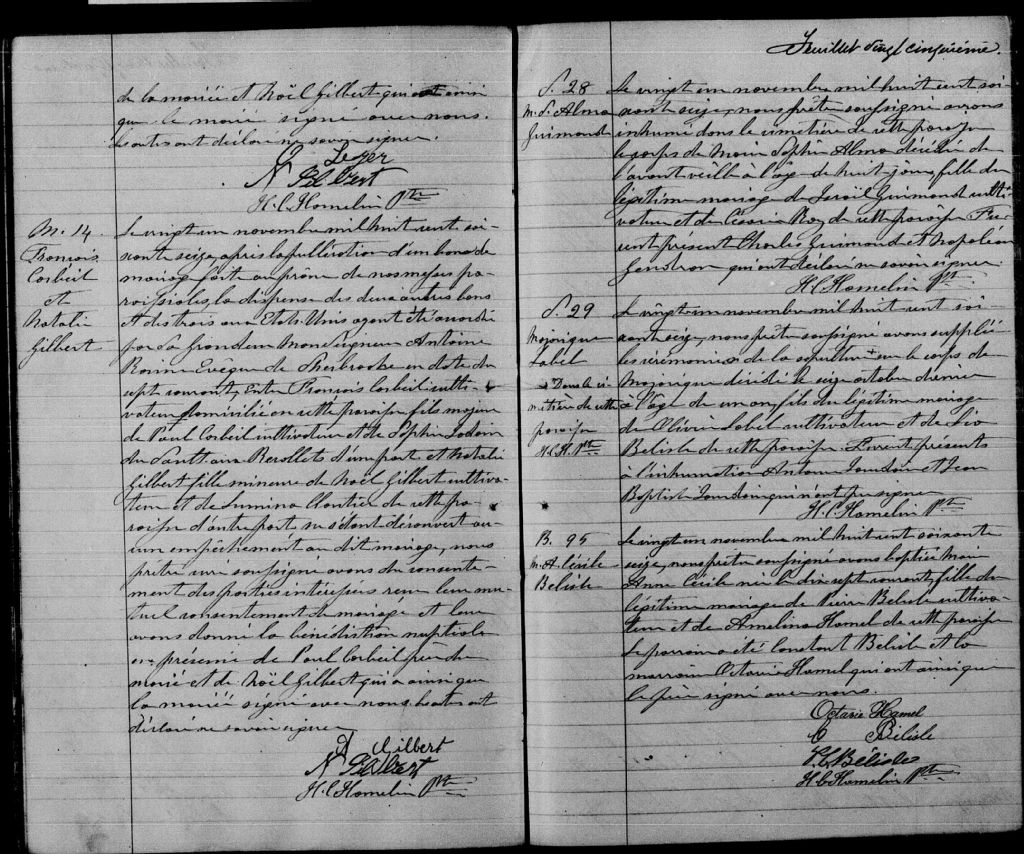 de la mariée et Noël Gilbert qui ont ainsi
que le marié signé avec nous.
Les autres ont déclaré ne savoir signer.
Leger
N Gilbert
H.C. Hamelin Ptre
M. 14
François
Corbeil
et
Natalie
Gilbert
Le vingt un novembre mil huit cent soi-
xante seize, après la publication d'un ban de
mariage faite au prône de nos messes pa-
roissiales, la dispense des deux autres bans
et des trois aux Etats-Unis ayant été accordée
par Sa Grandeur Monseigneur Antoine
Racine Evêque de Sherbrooke en date du
sept courant, Entre François Corbeil culti-
vateur domicilié en cette paroisse fils majeur
de Paul Corbeil cultivateur et de Sophie
du Sault aux Recollets d'une part, et Natalie
Gilbert fille mineure de Noël Gilbert cultiva-
teur et de Lumina Cloutier de cette pa-
roisse d'autre part ne s'étant découvert au-
cun empêchement au dit mariage, nous
prêtre curé soussigné avons du consente-
ment des parties intéressées reçu leur mu-
tuel consentement de mariage et leur
avons donné la bénédiction nuptiale
en présence de Paul Corbeil père du
marié et de Noël Gilbert qui a ainsi que
la mariée signé avec nous. Les autres ont
déclaré ne savoir signer
Gilbert
N Gilbert
H.C. Hamelin Ptre
Feuillet vingt cinquième.
S. 28
M. S. Alma
Guimond
Le vingt un novembre mil huit cent soi-
xante seize, nous prêtre soussigné avons
inhumé dans le cimetière de cette paroisse
le corps de Marie Sophie Alma décédée de
l'avant veille à l'âge de huit jours, fille du
légitime mariage de Israël Guimond culti-
vateur et de Roy de cette paroisse Fu-
rent présent Charles Guimond et Napoléon
Gendron qui ont déclaré ne savoir signer.
H.C. Hamelin Ptre
S. 29
Majorique
Label
Dans le ci-
metière de cette
paroisse
H.C.H. Ptre
Le vingt un novembre mil huit cent soi-
xante seize, nous prêtre soussigné avons supplée
les cérémonies de la sépulture + sur le corps de
Majorique décédé le seize octobre dernier
à l'âge de un an fils du légitime mariage
de Olivier Label cultivateur et de
Belisle de cette paroisse. Furent présents
à l'inhumation Antoine Jourdain et Jean
Baptiste Jourdain qui n'ont pu signer
H.C. Hamelin Ptre
B. 95
M. A. Cécile
Belisle
Le vingt un novembre mil huit cent soixante
seize, nous prêtre soussigné avons baptisé Marie
Anne Cécile née le dix sept courant, fille du
légitime mariage de Pierre Belisle cultiva-
teur et de Amelina Hamel de cette paroisse
Le parrain a été Constant Belisle et la
marraine Octavie Hamel qui ont ainsi que
le père signé avec nous.
Octavie Hamel
C Bélisle
Bélisle
H.C. Hamelin Ptre